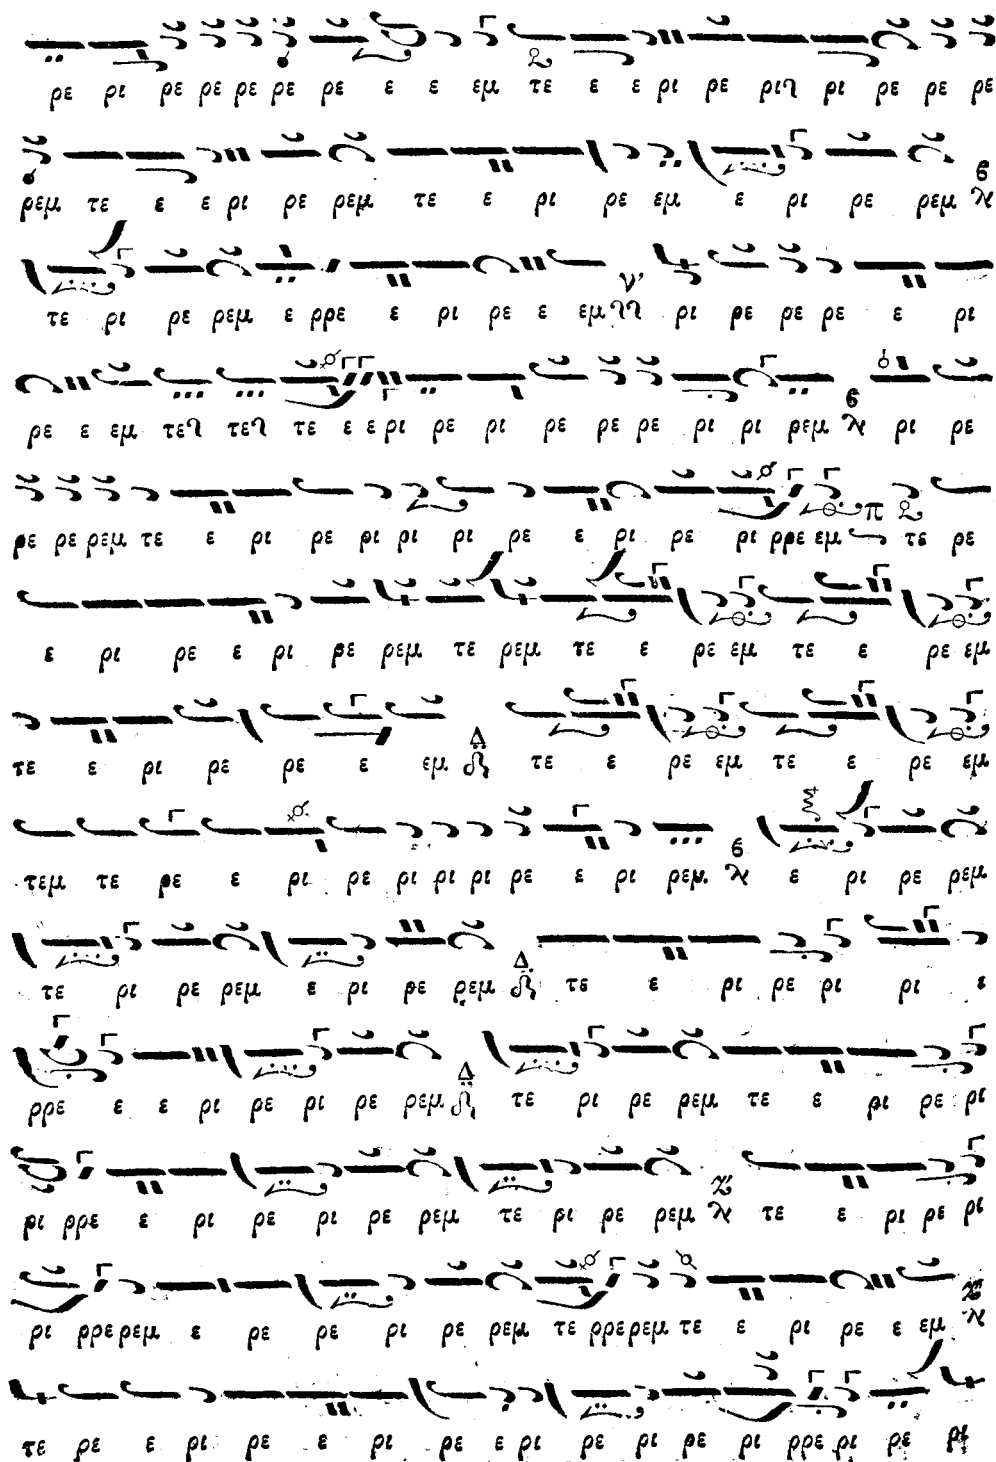 ρε ρι ρε ρε ρε ρε ρε ε ε εμ τε ε ε ρι ρε ρι ρι ρε ρε ρε
ρεμ τε ε ε ρι ρε ρεμ τε ε ρι ρε εμ ε ρι ρε ρεμ
τε ρι ρε ρεμ ε ρρε ε ρι ρε ε εμ ρι ρε ρε ρε ε ρι
ρε ε εμ τε τε τε ε ε ρι ρε ρι ρε ρε ρε ρι ρι ρεμ ρι ρε
ρε ρε ρεμ τε ε ρι ρε ρι ρι ρι ρε ε ρι ρε ρι ρρε εμ τε ρε
ε ρι ρε ε ρι ρε ρεμ τε ρεμ τε ε ρε εμ τε ε ρε εμ
τε ε ρι ρε ρε ε εμ τε ε ρε εμ τε ε ρε εμ
τεμ τε ρε ε ρι ρε ρι ρι ρι ρε ε ρι ρεμ ε ρι ρε ρεμ
τε ρι ρε ρεμ ε ρι ρε ρεμ τε ε ρι ρε ρι ρι ε
ρρε ε ε ρι ρε ρι ρε ρεμ τε ρι ρε ρεμ τε ε ρι ρε ρι
ρι ρρε ε ρι ρε ρι ρε ρεμ τε ρι ρε ρεμ τε ε ρι ρε ρι
ρι ρρε ρεμ ε ρε ρε ρι ρε ρεμ τε ρρε ρεμ τε ε ρι ρε ε εμ
τε ρε ε ρι ρε ε ρι ρε ε ρι ρε ρι ρε ρι ρρε ρι ρε ρι